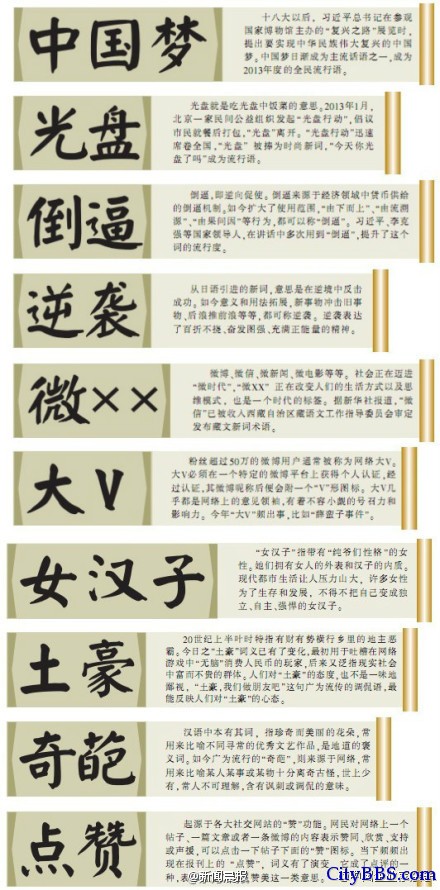 中国梦
十八大以后，习近平总书记在参观
国家博物馆主办的“复兴之路”展览时，
提出要实现中华民族伟大复兴的中国
梦。中国梦日渐成为主流话语之一，成为
2013年度的全民流行语。
光盘
光盘就是吃光盘中饭菜的意思。2013年1月，
北京一家民间公益组织发起“光盘行动”，倡议
市民就餐后打包，“光盘”离开。“光盘行动”迅速
席卷全国，“光盘” 被捧为时尚新词，“今天你光
盘了吗”成为流行语。
倒逼
倒逼，即逆向促使。倒逼来源于经济领域中货币供给
的倒逼机制。如今扩大了使用范围，“由下而上”、“由流溯
源”、“由果问因”等行为，都可以称“倒逼”。习近平、李克
强等国家领导人，在讲话中多次用到“倒逼”，提升了这个
词的流行度。
逆袭
从日语引进的新词，意思是在逆境中反击
成功。如今意义和用法拓展，新事物冲击旧事
物、后浪推前浪等等，都可称逆袭。逆袭表达
了百折不挠、奋发图强、充满正能量的精神。
微××
微博、微信、微新闻、微电影等等。社会正在迈进
“微时代”，“微XX” 正在改变人们的生活方式以及思
维模式，也是一个时代的标签。据新华社报道，“微
信”已被收入西藏自治区藏语文工作指导委员会审定
发布藏文新词术语。
大V
粉丝超过50万的微博用户通常被称为网络大V。
大V必须在一个特定的微博平台上获得个人认证，经
过认证，其微博昵称后便会附一个“V”形图标。大V几
乎都是网络上的意见领袖，有着不容小觑的号召力和
影响力。今年“大V”频出事，比如“薛蛮子事件”。
女汉子
“女汉子”指带有“纯爷们性格”的女
性。她们拥有女人的外表和汉子的内质。
现代都市生活让人压力山大，许多女性
为了生存和发展，不得不把自己变成独
立、自主、强悍的女汉子。
土豪
20世纪上半叶时特指有财有势横行乡里的地主恶
霸。今日之“土豪”词义已有了变化，最初用于吐槽在网络
游戏中“无脑”消费人民币的玩家，后来又泛指现实社会
中富而不贵的群体。人们对“土豪”的态度，也不是一味地
鄙视，“土豪，我们做朋友吧”这句广为流传的调侃语，最
能反映人们对“土豪”的心态。
奇葩
汉语中本有其词，指珍奇而美丽的花朵，常
用来比喻不同寻常的优秀文艺作品，是地道的褒
义词。如今广为流行的“奇葩”，则来源于网络，常
用来比喻某人某事或某物十分离奇古怪，世上少
有，常人不可理解，含有讽刺或调侃的意味。
点赞
起源于各大社交网站的“赞”功能。网民对网络上一个
帖子、一篇文章或者一条微博的内容表示赞同、欣赏、支持
或声援，可以点击一下帖子下面的“赞”图标。当下频频出
现在报刊上的“点赞”，词义有了演变，它成了点评的一
@新闻晨报
CityBBS.com